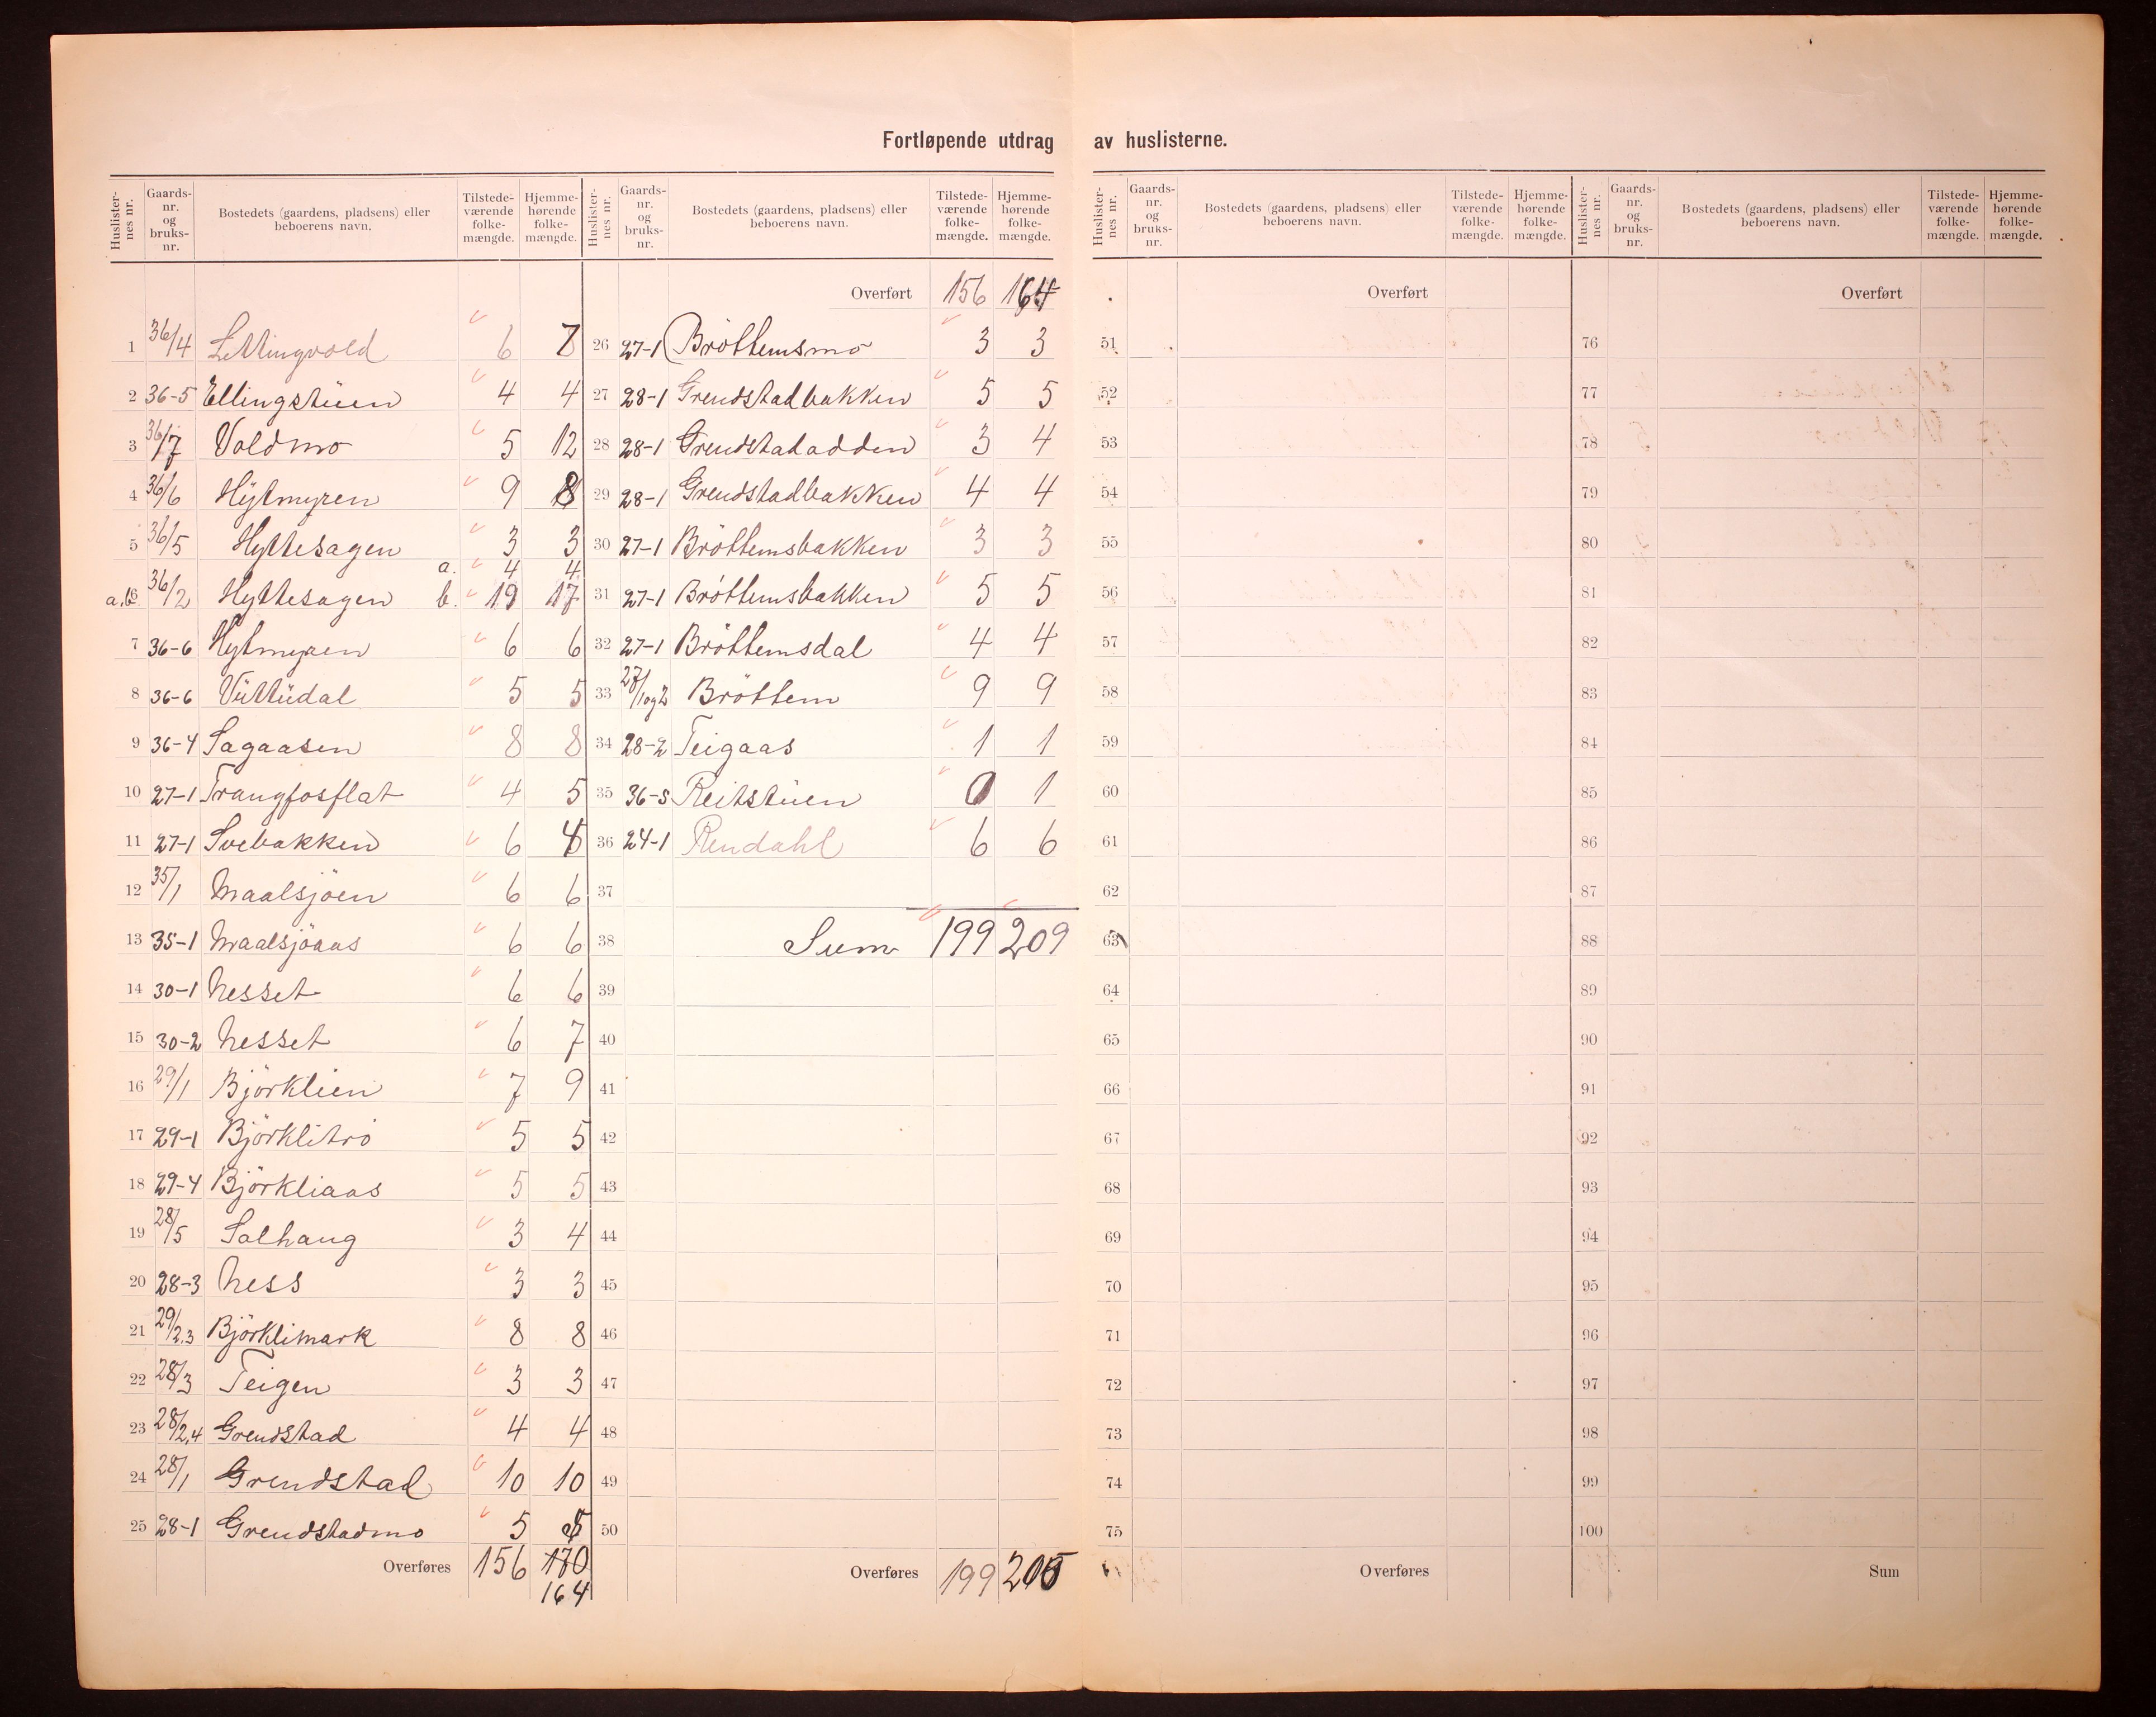 Fortløpende utdrag av huslisterne.
Huslister-nes nr. Gaards-nr. og bruks-nr. Bostedets (gaardens, pladsens) eller beboerens navn. Tilstede-værende folke-mængde. Hjemme-hørende folke-mængde.
1 36/4 Littingvold 6 7
2 36-5 Ellingstuen 4 4
3 36/7 Voldmo 5 12
4 36/6 Hytmyren 9 8
5 36/5 Hyttesagen 3 3
a. 4 4
a.b. 6 36/2 Hyttesagen b. 19 17
7 36-6 Hytmyren 6 6
8 36-6 Vuttudal 5 5
9 36-4 Sagaasen 8 8
10 27-1 Trangfosflat 4 5
11 27-1 Svebakken 6
12 35/1 Maalsjöen 6 6
13 35-1 Maalsjöaas 6 6
14 30-1 Nesset 6 6
15 30-2 Nesset 6 7
16 29/1 Björklien 7 9
17 29-1 Björklitrö 5 5
18 29-4 Björkliaas 5 5
19 28/5 Solhaug 3 4
20 28-3 Ness 3 3
21 29/2.3 Björklimark 8 8
22 28/3 Teigen 3 3
23 28/2,4 Grendstad 4 4
24 28/1 Grendstad 10 10
25 28-1 Grendstadmo 5 5
Overføres 156 170
164
Huslister-nes nr. Gaards-nr. og bruks-nr. Bostedets (gaardens, pladsens) eller beboerens navn. Tilstede-værende folke-mængde. Hjemme-hørende folke-mængde.
Overført 156 164
26 27-1 Bröttemsmo 3 3
27 28-1 Grendstadbakken 5 5
28 28-1 Grendstadadden 3 4
29 28-1 Grendstadbakken 4 4
30 27-1 Bröttemsbakken 3 3
31 27-1 Bröttemsbakken 5 5
32 27-1 Bröttemsdal 4 4
33 27/1og2 Bröttem 9 9
34 28-2 Teigaas 1 1
35 36-5 Reitstuen 0 1
36 24-1 Rendahl 6 6
37
38 Sum 199 209
39
40
41
42
43
44
45
46
47
48
49
50
Overføres 199
Huslister-nes nr. Gaards-nr. og bruks-nr. Bostedets (gaardens, pladsens) eller beboerens navn. Tilstede-værende folke-mængde. Hjemme-hørende folke-mængde.
Overført
51
52
53
54
55
56
57
58
59
60
61
62
63
64
65
66
67
68
69
70
71
72
73
74
75
Overføres
Huslister-nes nr. Gaards-nr. og bruks-nr. Bostedets (gaardens, pladsens) eller beboerens navn. Tilstede-værende folke-mængde. Hjemme-hørende folke-mængde.
Overført
76
77
78
79
80
81
82
83
84
85
86
87
88
89
90
91
92
93
94
95
96
97
98
99
100
Sum